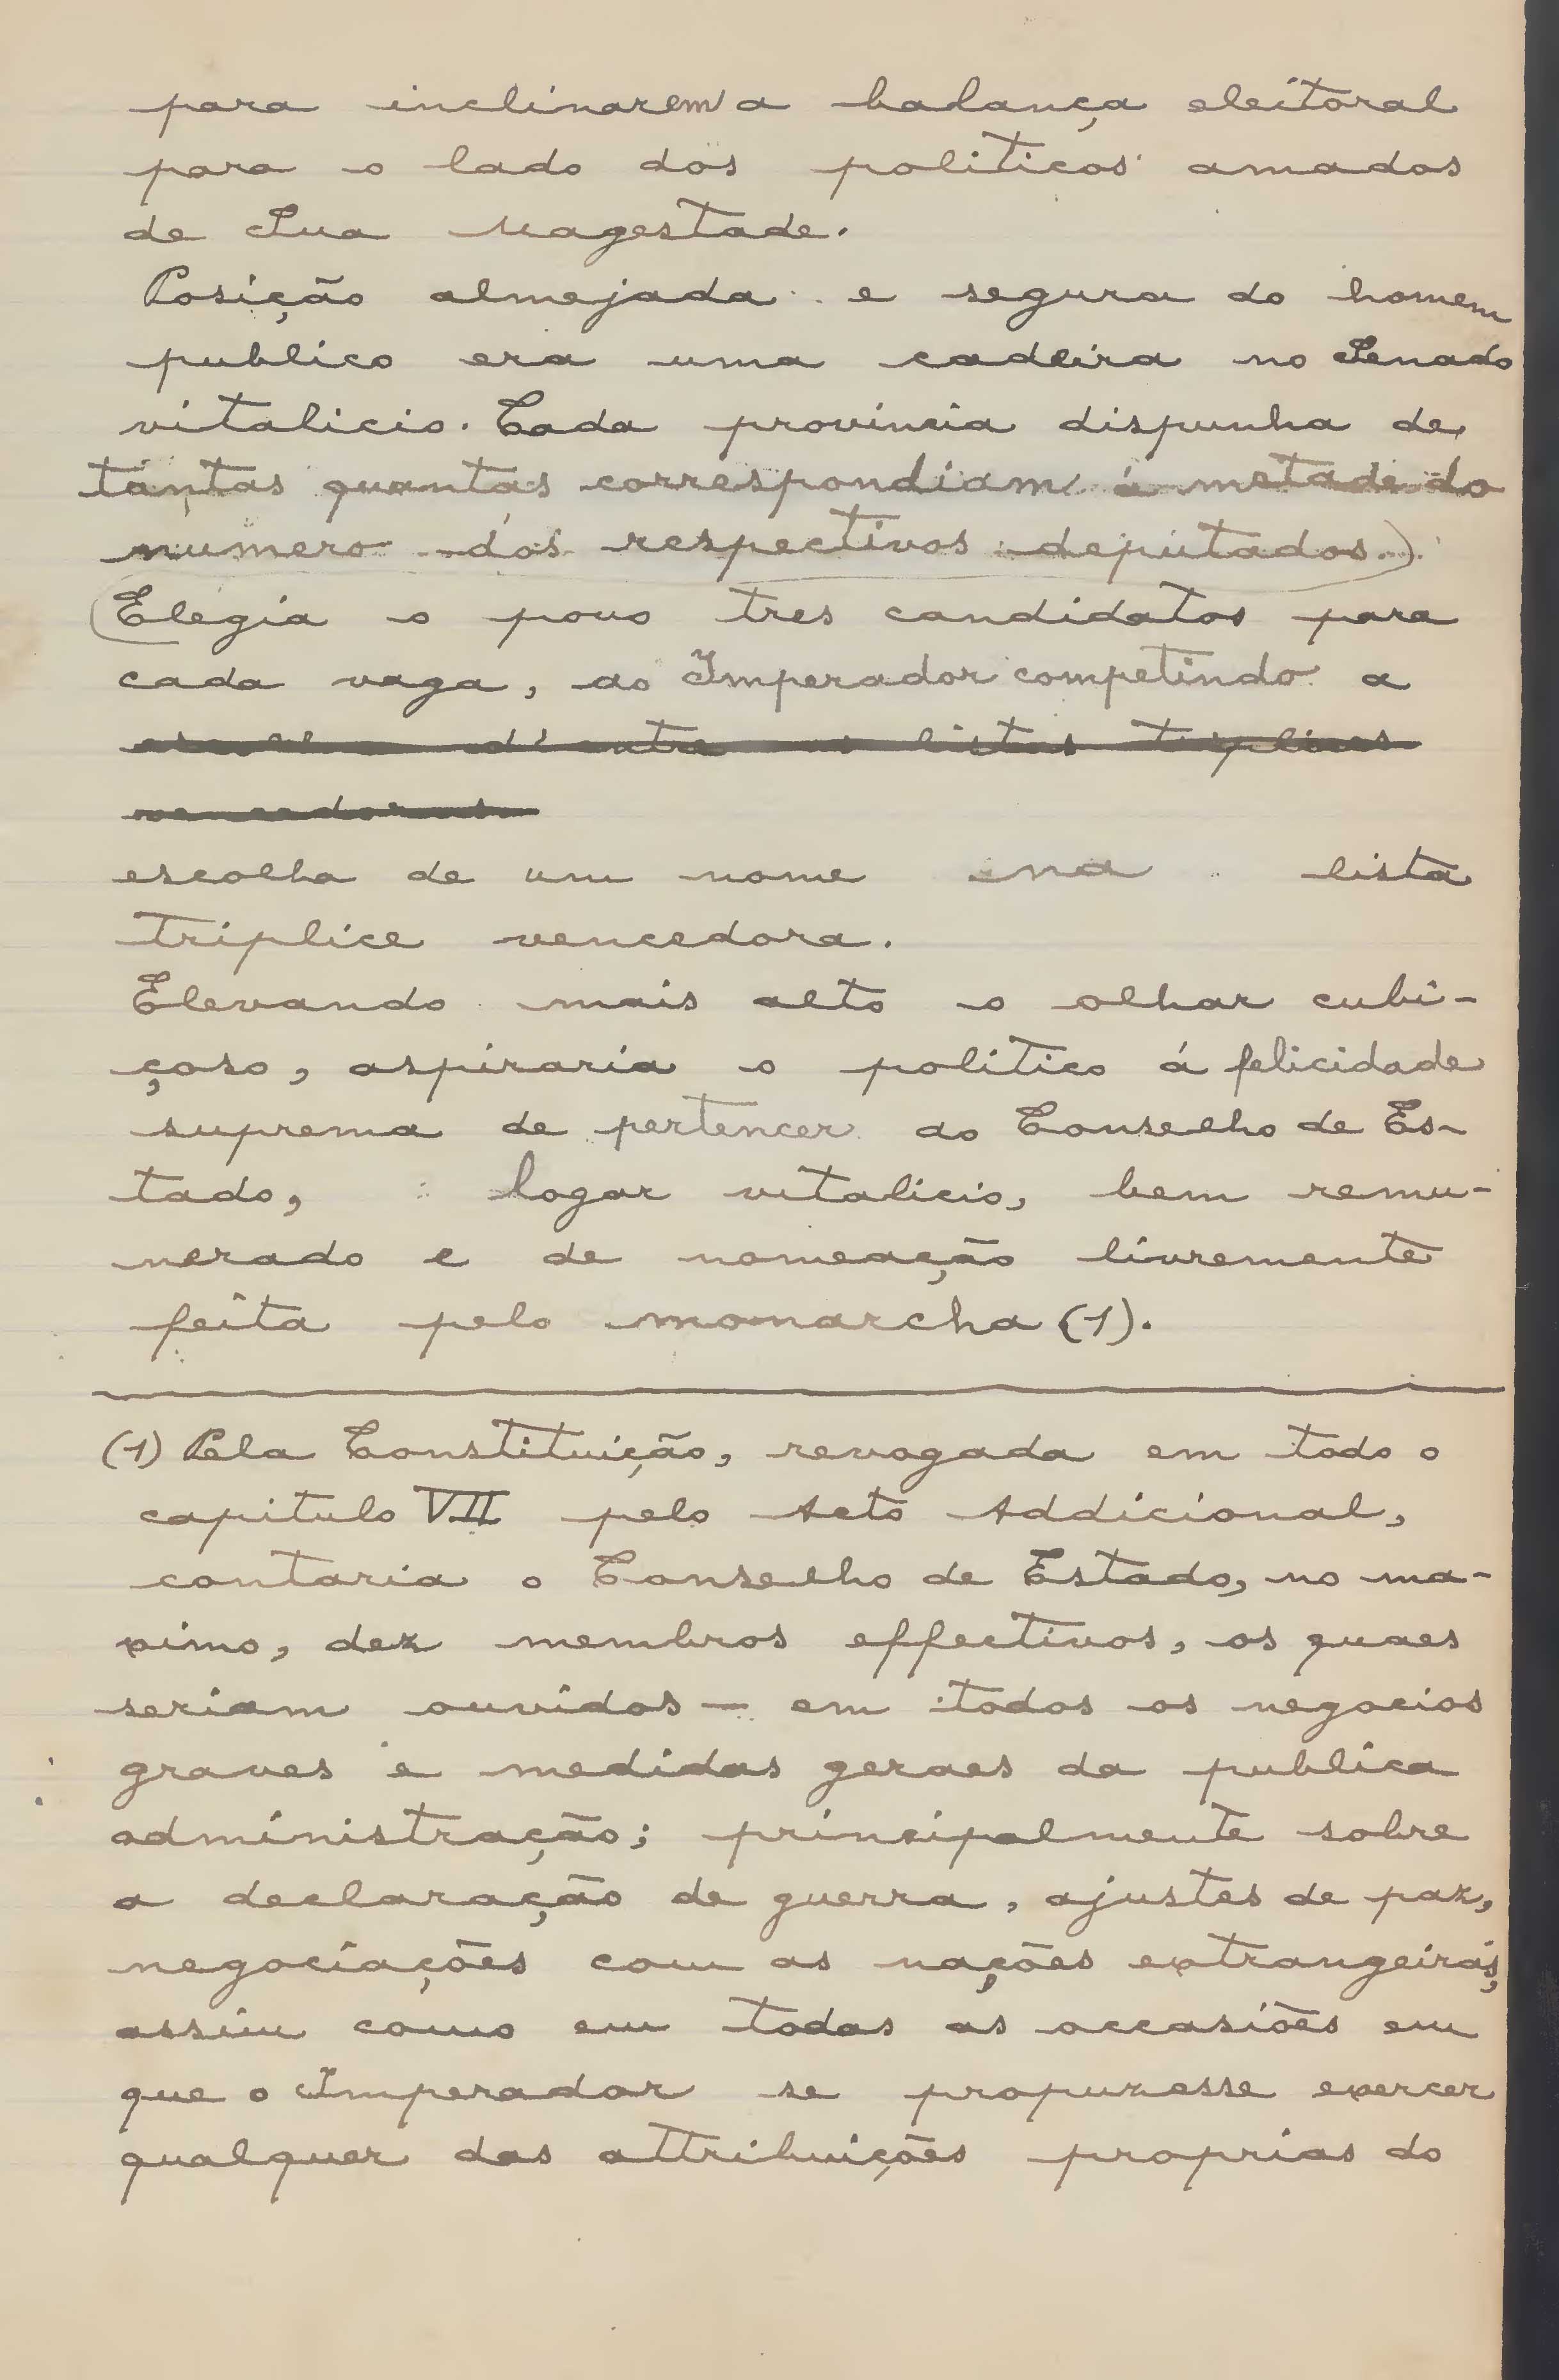 para inclinarem a balança eleitoral
para o lado dos politicos amados
de Sua Magestade.
Posição almejada e segura do homem
publico era uma cadeira no Senado
vitalicio. Cada provincia dispunha de
tantas quantas correspondiam á metade do
numero dos respectivos deputados.)
(Elegia o povo tres candidatos para
cada vaga, ao Imperador competindo a
escolha d'entre as listas triplices
vencedoras.
escolha de um nome na lista
triplice vencedora.
Elevando mais alto o olhar cubi-
çoso, aspiraria o politico á felicidade
suprema de pertencer ao Conselho de Es-
tado, logar vitalicio, bem remu-
nerado e de nomeação livremente
feita pelo monarcha (1).
(1) Pela Constituição, revogada em todo o
capitulo VII pelo Acto Addicional,
contaria o Conselho de Estado, no ma-
ximo, dez membros effectivos, os quaes
seriam ouvidos — em todos os negocios
graves e medidas geraes da publica
administração; principalmente sobre
a declaração de guerra, ajustes de paz,
negociações com as nações extrangeiras,
assim como em todas as occasiões em
que o Imperador se propuzesse exercer
qualquer das attribuições proprias do